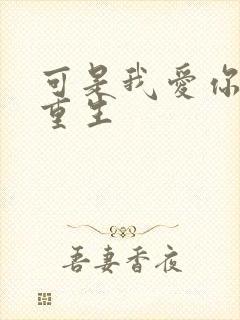 可是我愛你
重生
吾妻香夜